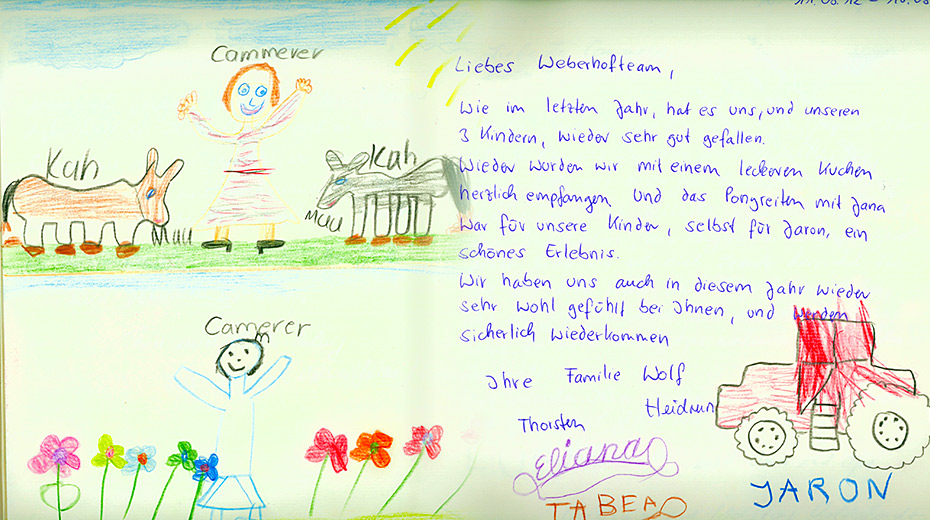 Cammerer
Kah
Kah
Mau
Mau
Camerer
m
Liebes Weberhofteam,
Wie im letzten Jahr, hat es uns, und unseren
3 Kindern, wieder sehr gut gefallen.
Wieder wurden wir mit einem leckeren Kuchen
herzlich empfangen und das Ponyreiten mit Jana
war für unsere Kinder, selbst für Jaron, ein
schönes Erlebnis.
Wir haben uns auch in diesem Jahr wieder
sehr wohl gefühlt bei Ihnen, und werden
sicherlich wiederkommen
Ihre Familie Wolf
Heidrun
Thorsten
Eliana
TABEA
JARON